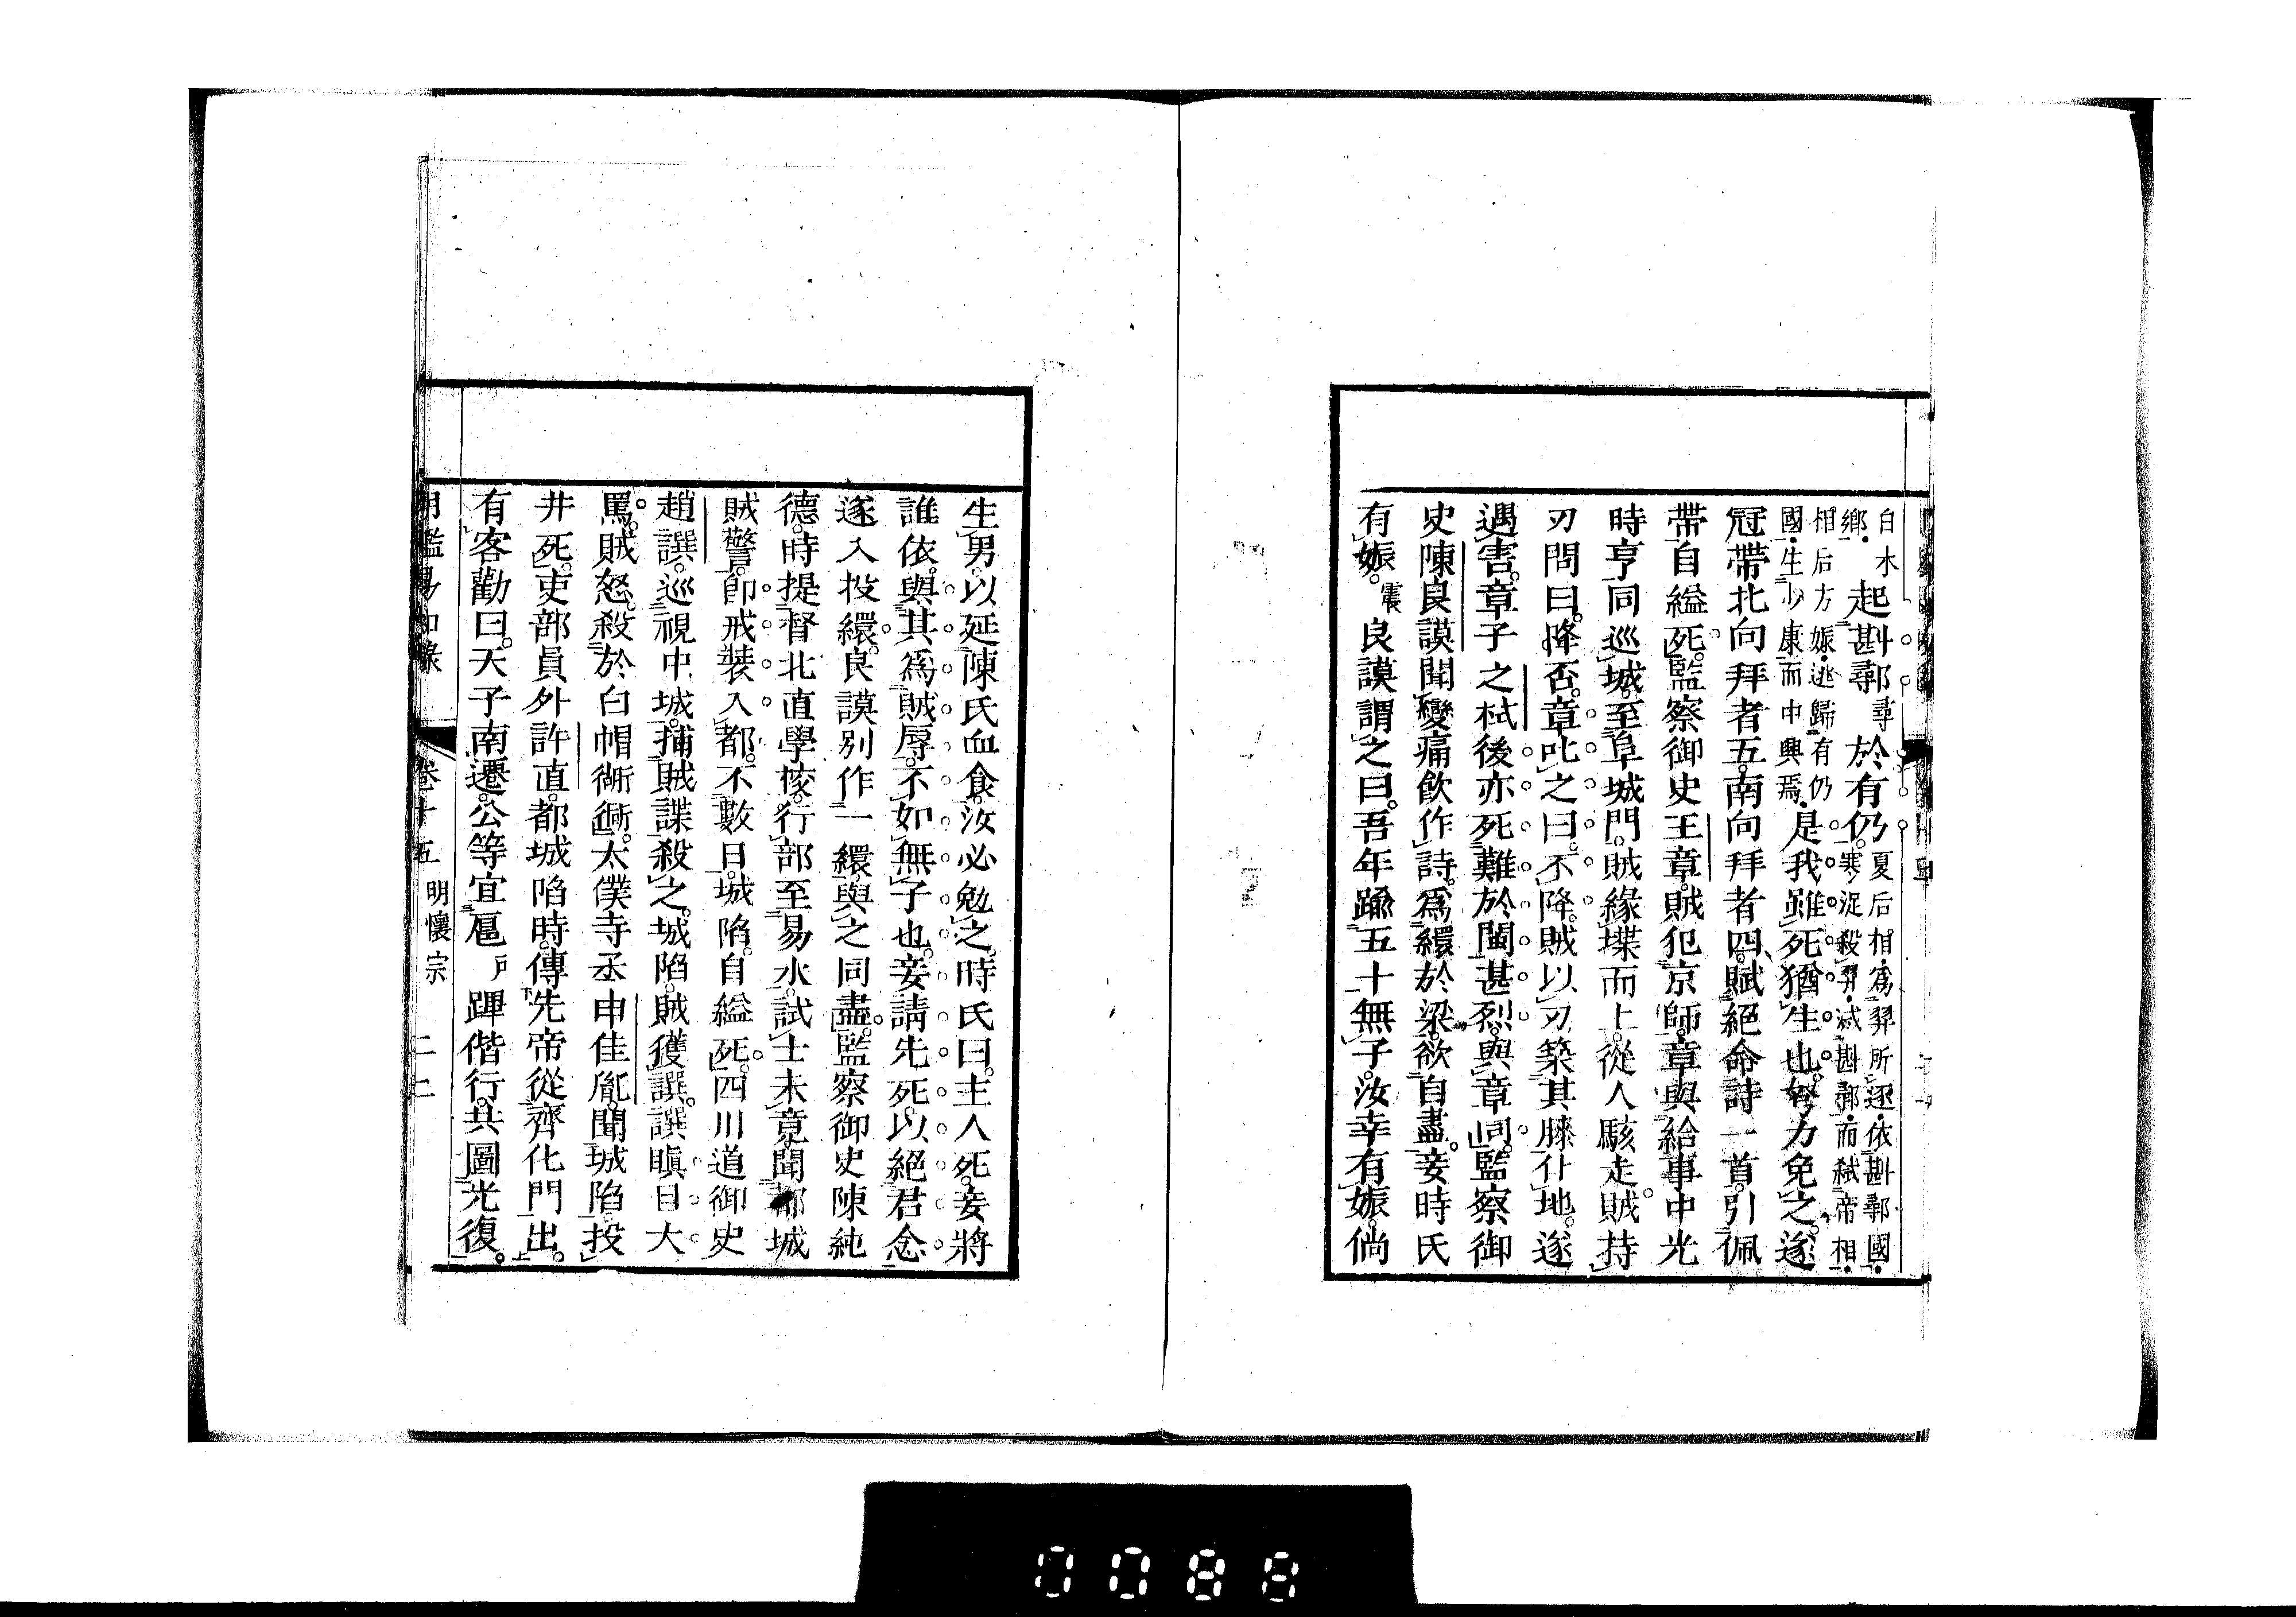 白水鄉。起斟鄩尋於有仍。夏后相爲羿所逐依斟鄩國寒浞殺羿滅斟鄩而弑帝相
相后方娠逃歸有仍國生少康而中興焉是我雖死猶生也。努力免之。遂
冠帶北向拜者五。南向拜者四。賦絕命詩一首。引佩
帶自縊死。監察御史王章。賊犯京師。章與給事中光
時亨同巡城。至阜城門。賊緣堞而上。從人駭走。賊持
刃問曰。降否。章叱之曰。不降。賊以刃築其膝仆地。遂
遇害。章子之栻後亦死難於閩甚烈。與章同。監察御
史陳良謨聞變痛飲作詩。爲繯於梁。欲自盡。妾時氏
有娠。震良謨謂之曰。吾年踰五十無子。汝幸有娠。倘
生男。以延陳氏血食。汝必勉之。時氏曰。主人死。妾將
誰依。與其爲賊辱。不如無子也。妾請先死。以絕君念。
遂入投繯。良謨別作一繯。與之同盡。監察御史陳純
德。時提督北直學校。行部至易水。試士未竟。聞都城
賊警。卽戒裝入都。不數日。城陷。自縊死。四川道御史
趙譔。巡視中城。捕賊諜殺之。城陷。賊獲譔。譔瞋目大
罵。賊怒。殺於白帽衚衕。太僕寺丞申佳胤。聞城陷。投
井死。吏部員外許直。都城陷時。傳先帝從齊化門出。
有客勸曰。天子南遷。公等宜扈戶蹕偕行。共圖光復。
明鑑易知錄 卷十五 明懷宗 二二
0088